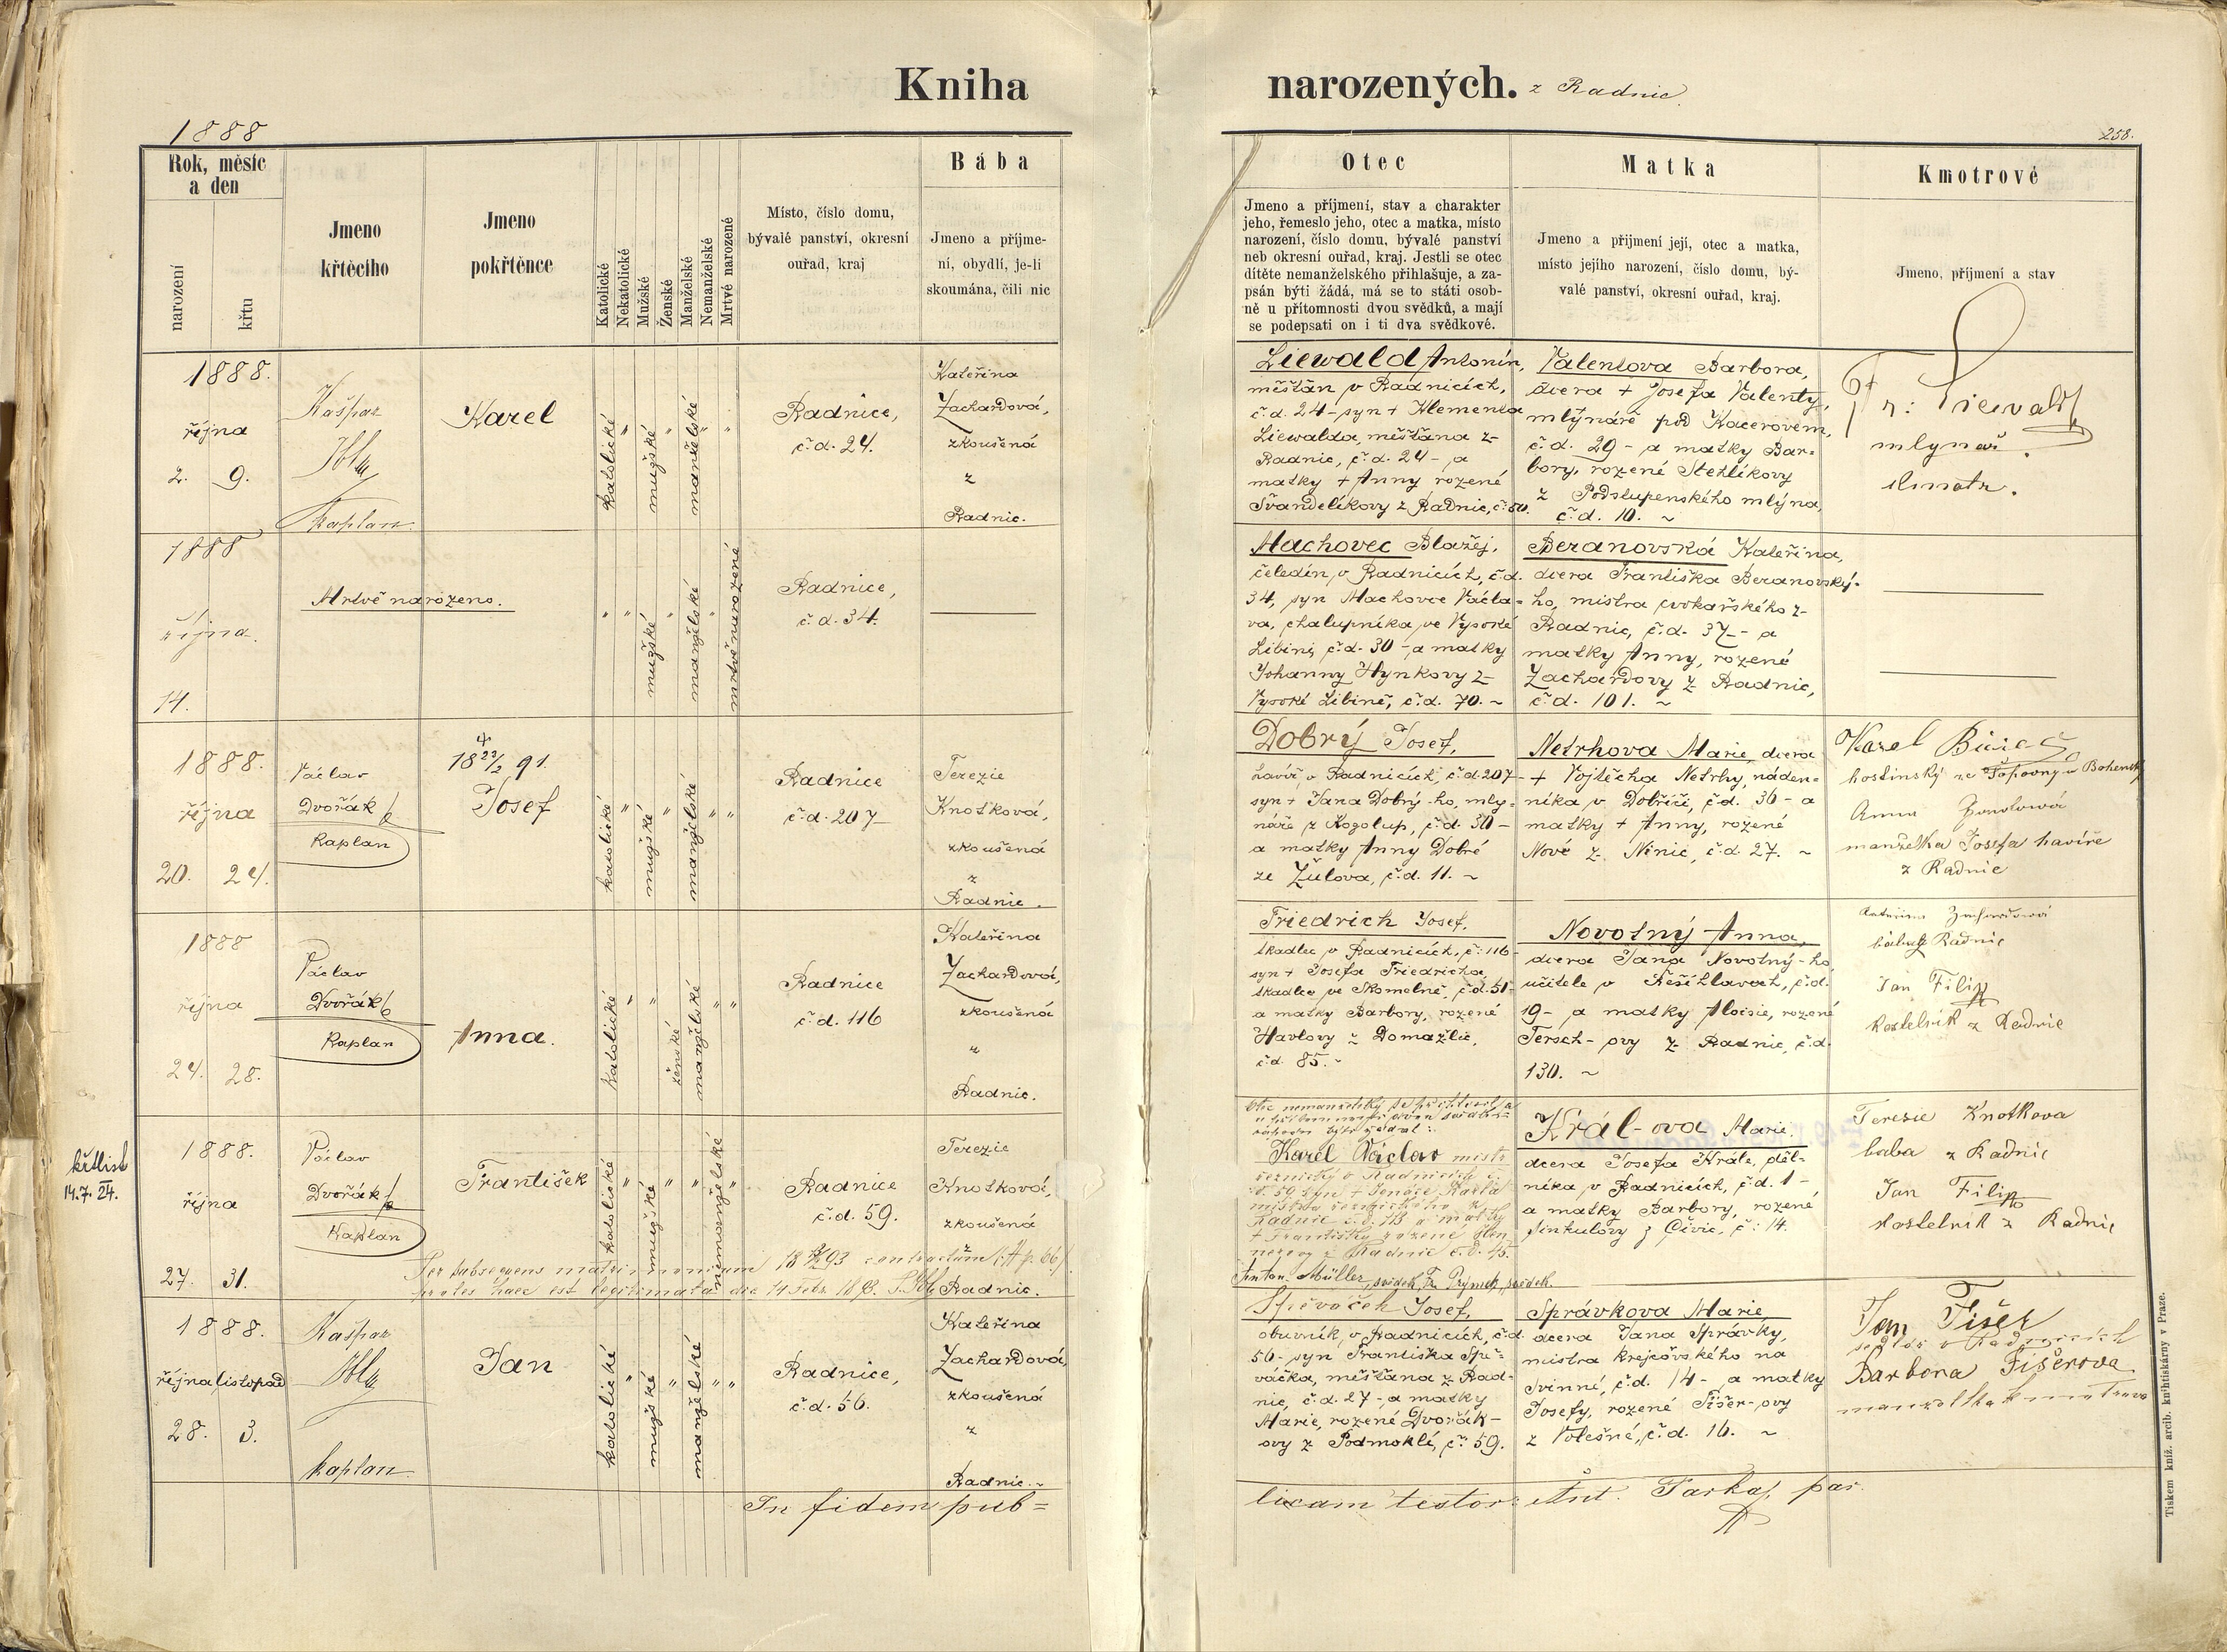 Kniha narozených. z Radnic
1888
258.
Rok, měsíc
a den
narození
křtu
Jmeno
křtěcího
Jmeno
pokřtěnce
Katolické
Nekatolické
Mužské
Ženské
Manželské
Nemanželské
Mrtvé narozené
Místo, číslo domu,
bývalé panství, okresní
ouřad, kraj
Bába
Jmeno a příjme-
ní, obydlí, je-li
skoumána, čili nic
Otec
Jmeno a příjmení, stav a charakter
jeho, řemeslo jeho, otec a matka, místo
narození, číslo domu, bývalé panství
neb okresní ouřad, kraj. Jestli se otec
dítěte nemanželského přihlašuje, a za-
psán býti žádá, má se to státi osob-
ně u přítomnosti dvou svědků, a mají
se podepsati on i ti dva svědkové.
Matka
Jmeno a přijmení její, otec a matka,
místo jejího narození, číslo domu, bý-
valé panství, okresní ouřad, kraj.
Kmotrové
Jmeno, příjmení a stav
1888.
října
2. 9.
Kašpar
Kaplan
Karel
katolické
"
mužské
manželské
"
"
Radnice,
č.d. 24.
Kateřina
Zachardová,
zkoušená
z
Radnic.
Liewald Antonín,
měšťan v Radnicích,
č.d. 24 - syn + Klementa
Liewalda, měšťana z
Radnic, č.d. 24 - a
matky + Anny rozené
Švandelíkovy z Radnic, č. 50.
Valentova Barbora,
dcera + Josefa Valenty,
mlýnáře pod Kacerovem,
č.d. 29 - a matky Bar-
bory, rozené Stehlíkovy
z Podstupenského mlýna,
č.d. 10. ~
Fr: Liewald
mlynář
kmotr.
1888
října.
14.
Mrtvě narozeno.
"
"
mužské
"
manželské
"
mrtvě narozené
Radnice,
č.d. 34.
Machovec Blažej,
čeledín v Radnicích, č.d.
34, syn Machovce Václa-
va, chalupníka ve Vysoké
Libini, č.d. 30 - a matky
Johanny Hynkovy z
Vysoké Libině, č.d. 70. ~
Beranovská Kateřina,
dcera Františka Beranovský-
ho, mistra z
Radnic, č.d. 37 - a
matky Anny, rozené
Zachardovy z Radnic,
č.d. 101. ~
1888.
října
20. 24.
Václav
Dvořák
Kaplan
18 22/2 91.
Josef
katolické
"
mužské
"
manželské
"
"
Radnice
č.d. 207
Terezie
Knotková,
zkoušená
z
Radnic.
Dobrý Josef,
havíř v Radnicích, č.d. 207 -
syn + Jana Dobrý-ho, mly-
náře z Kozolup, č.d. 30 -
a matky Anny Dobré
ze Žulova, č.d. 11. ~
Netrhova Marie, dcera
+ Vojtěcha Netrhy, náden-
níka v Dobříči, č.d. 36 - a
matky + Anny, rozené
Nové z Ninic, č.d. 27. ~
Karel
hostinský
Anna
manželka Josefa havíře
z Radnic
1888
října
24. 28.
Václav
Dvořák
Kaplan
Anna.
katolické
"
"
ženské
manželské
"
"
Radnice
č.d. 116
Kateřina
Zachardová,
zkoušená
z
Radnic.
Friedrich Josef,
tkadlec v Radnicích, č. 116 -
syn + Josefa Friedricha,
tkadlce ve Skomelně, č.d. 51 -
a matky Barbory, rozené
Havlovy z Domažlic,
č.d. 85. -
Novotný Anna,
dcera Jana Novotný-ho
učitele v Řešihlavech, č.d.
19 - a matky Aloisie, rozené
Tersch-ovy z Radnic, č.d.
130. ~
Kateřina Zachardová
bába z Radnic
Jan Filip
kostelník z Radnic
křtl. list
14.7.24.
1888.
října
27. 31.
Václav
Dvořák
Kaplan
František
katolické
"
mužské
"
"
nemanželské
"
Radnice
č.d. 59.
Terezie
Knotková,
zkoušená
z
Radnic.
Per subsequens matrimonium contractum
proles haec est legitimata die 14 Febr.
Otec nemanželský se
Karel Václav mistr
řeznický v Radnicích č.
d. 59 syn + Ignáce Karla
mistra řeznického z
Radnic č.d. a matky
+ Františky rozené
z Radnic č.d. 45.
Anton. Müller, svědek, Fr. Prýmek, svědek.
Král-ova Marie,
dcera Josefa Krále, děl-
níka v Radnicích, č.d. 1 -
a matky Barbory, rozené
Šintulovy z Čivic, č. 14.
Terezie Knotkova
baba z Radnic
Jan Filip
kostelník z Radnic
1888.
října listopad
28. 3.
Kašpar
kaplan
Jan
katolické
"
mužské
"
manželské
"
"
Radnice,
č.d. 56.
Kateřina
Zachardová,
zkoušená
z
Radnic. ~
Spěváček Josef,
obuvník v Radnicích, č.d.
56 - syn Františka Spě-
váčka, měšťana z Rad-
nic, č.d. 27 - a matky
Marie, rozené Dvořák-
ovy z Podmoklí, č. 59.
Správkova Marie
dcera Jana Správky,
mistra krejčovského na
Svinné, č.d. 14 - a matky
Josefy, rozené Fišer-ovy
z Volešné, č.d. 16. ~
Jan Fišer
sedlák v Radnicích
Barbora Fišerova
manželka kmotrova
In fidem pub=
licam testor: Ant. Tarkaj, par.
Tiskem kníž. arcib. knihtiskárny v Praze.